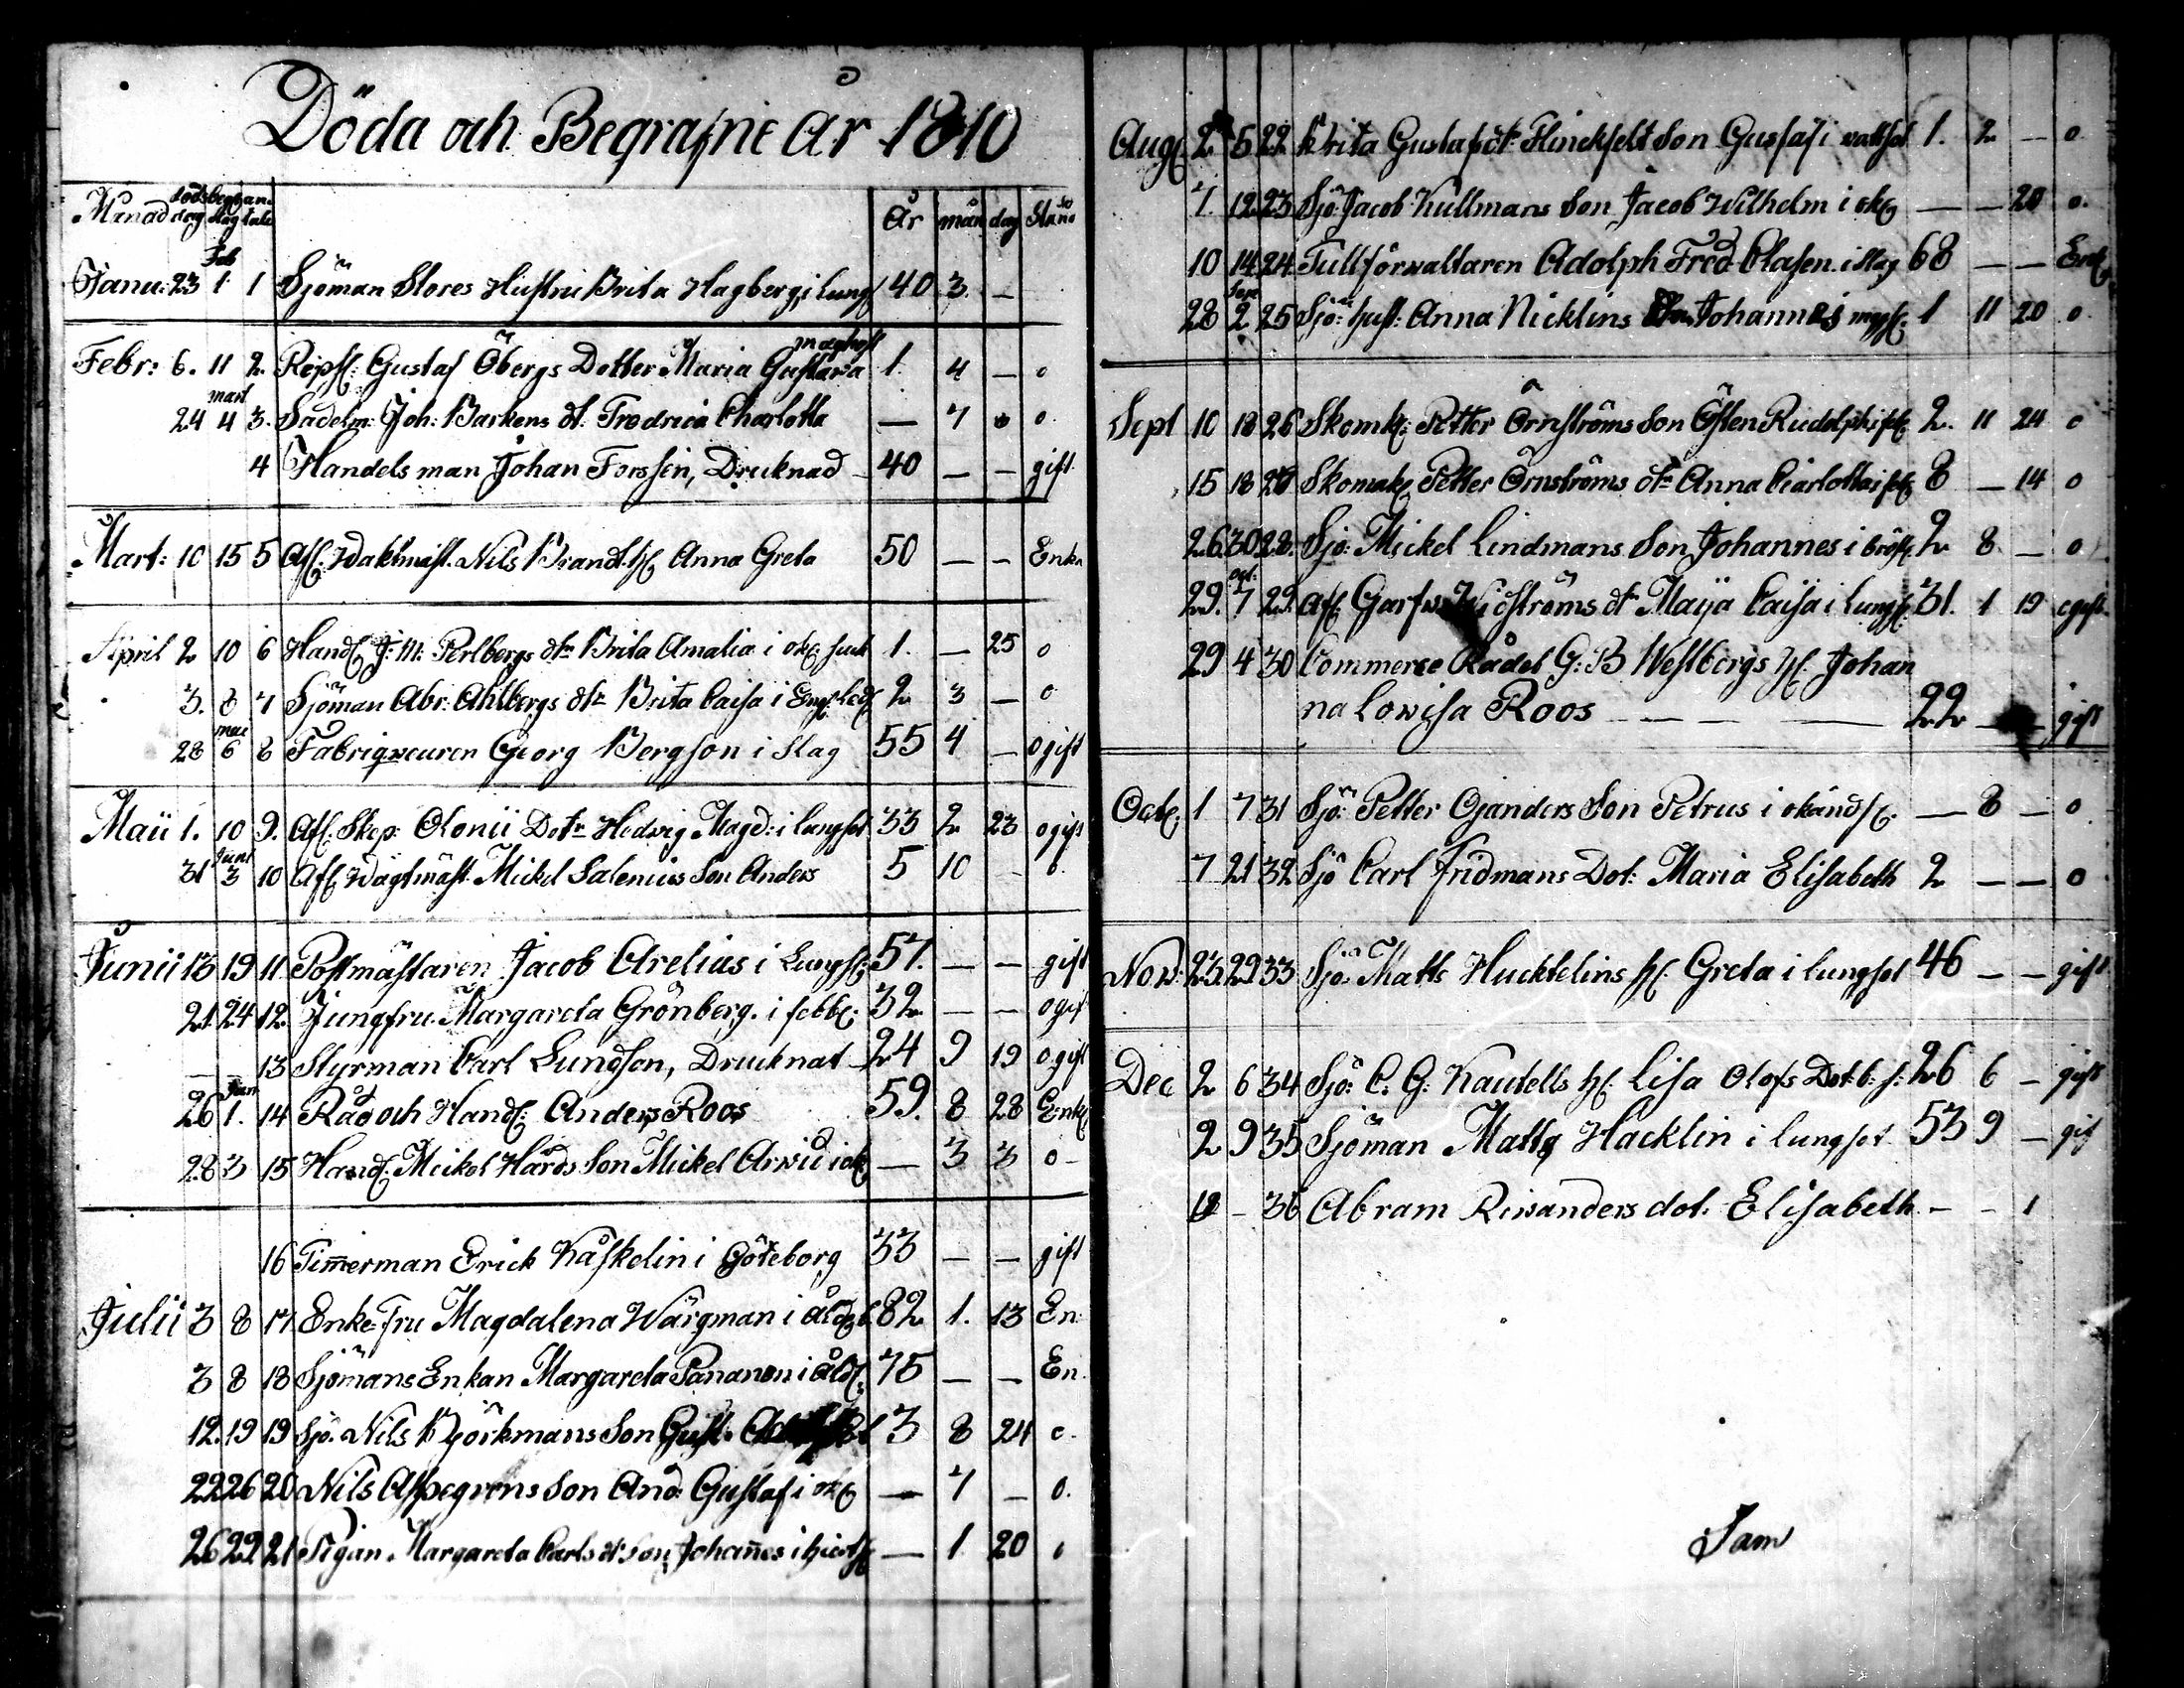 Döda och Begrafne År 1810
Månad döds dag begr dag antale År mån dag Stånd
Feb
Janu: 23 1 1 Sjöman Stores Hustru Brita Hagberg i lungs 40 3 –
Febr: 6. 11 2. Repsl: Gustaf Öbergs Dotter Maria Gustava 1. 4 – o
mart
24 4 3. Sadelm: Joh: Barkens dt: Fredrica Charlotta — 7 o
4 Handels man Johan Forssen, Drucknad 40 — – gift
Mart: 10 15 5 Afl: Waktmäst. Nils Brandt hu Anna Greta 50 — – Enka
April 2 10 6 Handl J: M: Perlbergs dtr Brita Amalia i ok: siuk 1. – 25 o
3. 8 7 Sjöman Abr: Ahlbergs dtr Brita Caisa i 2 3 – o
mai
28 6 8 Fabriqueuren Georg Bergson i Slag 55 4 – ogift
Maii 1. 10 9. Afl. Skep: Olonii Dotr Hedvig Magd: i lungsot 33 2 23 ogift
Juni
31 3 10 Afl Wagtmäst. Mickel Salenius Son Anders 5 10 – o
Junii 13 19 11 Postmästaren Jacob Arelius i Lungs 57. — – gift
21 24 12. Jungfru Margareta Grönberg. i febb: 32 — – ogif
– – 13 Styrman Carl Lundson, Drucknat 24 9 19 ogift
26 1. 14 Råd och Handl: Anders Roos 59. 8 28 Enkl
28 3 15 Handl: Mickel Hårds Son Mickel Arvid i ok — 3 3 o
16 Tim̄erman Erick Kåskelin i Göteborg 33 — – gift
Julii 3 8 17 Enke Fru Magdalena Wargman i åld 82 1. 13 En
3 8 18 Sjömans Enkan Margareta Pananen i åld 75 — – En.
12. 19 19 Sjö. Nils Björkmans Son Gust: 3 8 24 o.
22 26 20 Nils Aspegrens Son And: Gustaf i ok — 7 – o.
26 29 21 Pigan Margareta Carls dt: Son Johan̄es i — 1 20 o
Aug 2 5 22 Brita Gustafs dt: Flinckfelt Son Gustaf i vattsot 1. 2 – o
7. 12 23 Sjö Jacob Kullmans Son Jacob Wilhelm i ok — – 20 o.
10 14 24 Tullförvaltaren Adolph Fred Clasen i slag 68 — – Enk
28 2 25 Sjö: hust: Anna Nicklins Johannes 1 11 20 o
Sept 10 18 26 Skomk: Petter Örnströms Son Östen Rudolph i 2. 11 24 o
15 18 27 Skomak Petter Örnströms dtr Anna Carlotta i 8 – 14 o
26 30 28. Sjö: Mickel Lindmans Son Johannes i bröst 2 8 – o
oct:
29. 7 29. Afl: Garfw Widströms dtr Maija Caisa i lungs 31. 1 19 ogift
29 4 30 Commerce Rådet G: B Westbergs H: Johan
na Lovisa Roos — — — 22 – gift
Oct: 1 7 31 Sjö: Petter Ojanders Son Petrus i okänd s — 8 – o
7 21 32 Sjö Carl Fridmans Dot: Maria Elisabeth 2 — – o
Nov: 25. 29 33 Sjö. Matts Hucktelins H: Greta i lungsot 46 – – gift
Dec 2 6 34 Sjö: C. G: Kautells H: Lisa Olofs Dot: b: s: 26 6 – gift
2 9 35 Sjöman Matts Hacklin i lungsot 53 9 – gif
12 – 36 Abram Rivanders dot. Elisabeth – – 1
Sam